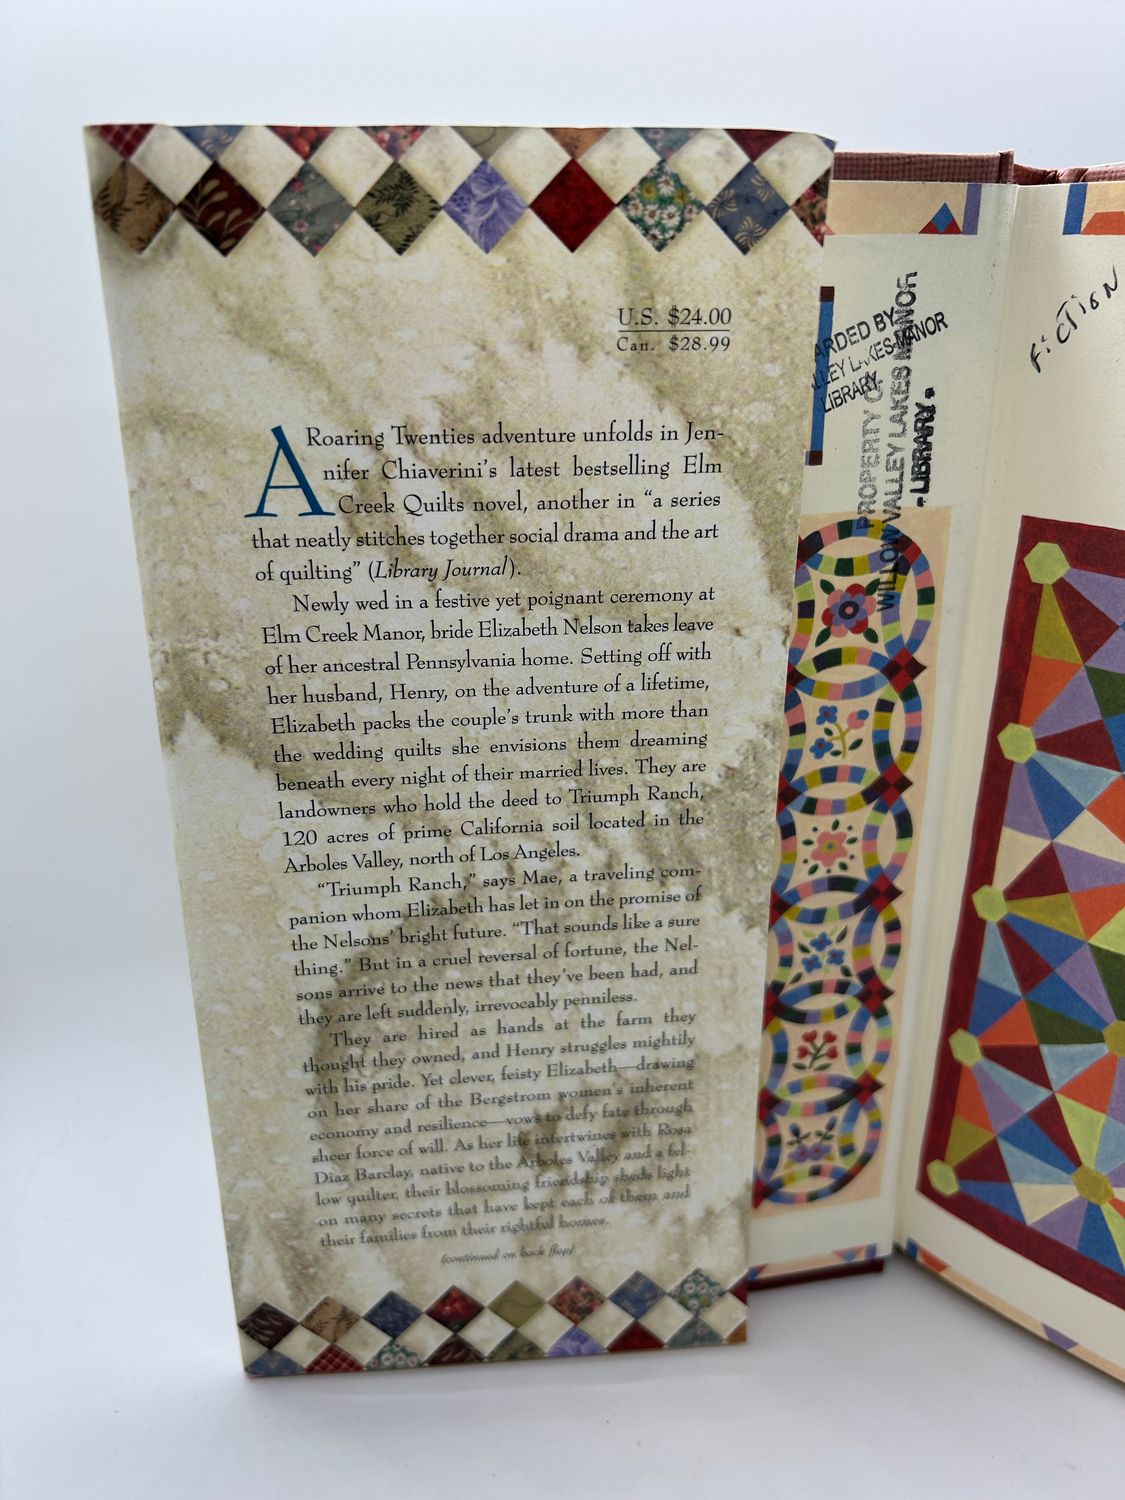 U.S. $24.00
Can. $28.99
A Roaring Twenties adventure unfolds in Jen-
nifer Chiaverini's latest bestselling Elm
Creek Quilts novel, another in “a series
that neatly stitches together social drama and the art
of quilting” (Library Journal).
Newly wed in a festive yet poignant ceremony at
Elm Creek Manor, bride Elizabeth Nelson takes leave
of her ancestral Pennsylvania home. Setting off with
her husband, Henry, on the adventure of a lifetime,
Elizabeth packs the couple's trunk with more than
the wedding quilts she envisions them dreaming
beneath every night of their married lives. They are
landowners who hold the deed to Triumph Ranch,
120 acres of prime California soil located in the
Arboles Valley, north of Los Angeles.
“Triumph Ranch,” says Mae, a traveling com-
panion whom Elizabeth has let in on the promise of
the Nelsons' bright future. “That sounds like a sure
thing.” But in a cruel reversal of fortune, the Nel-
sons arrive to the news that they've been had, and
they are left suddenly, irrevocably penniless.
They are hired as hands at the farm they
thought they owned, and Henry struggles mightily
with his pride. Yet clever, feisty Elizabeth—drawing
on her share of the Bergstrom women's inherent
economy and resilience—vows to defy fate through
sheer force of will. As her life intertwines with Rosa
Diaz Barclay, native to the Arboles Valley and a fel-
low quilter, their blossoming friendship sheds light
on many secrets that have kept each of them and
their families from their rightful homes.
(continued on back flap)
ARDED BY
LLEY LAKES MANOR
LIBRARY
PROPERTY OF
WILLOW VALLEY LAKES MANOR
- LIBRARY -
FiCTiON